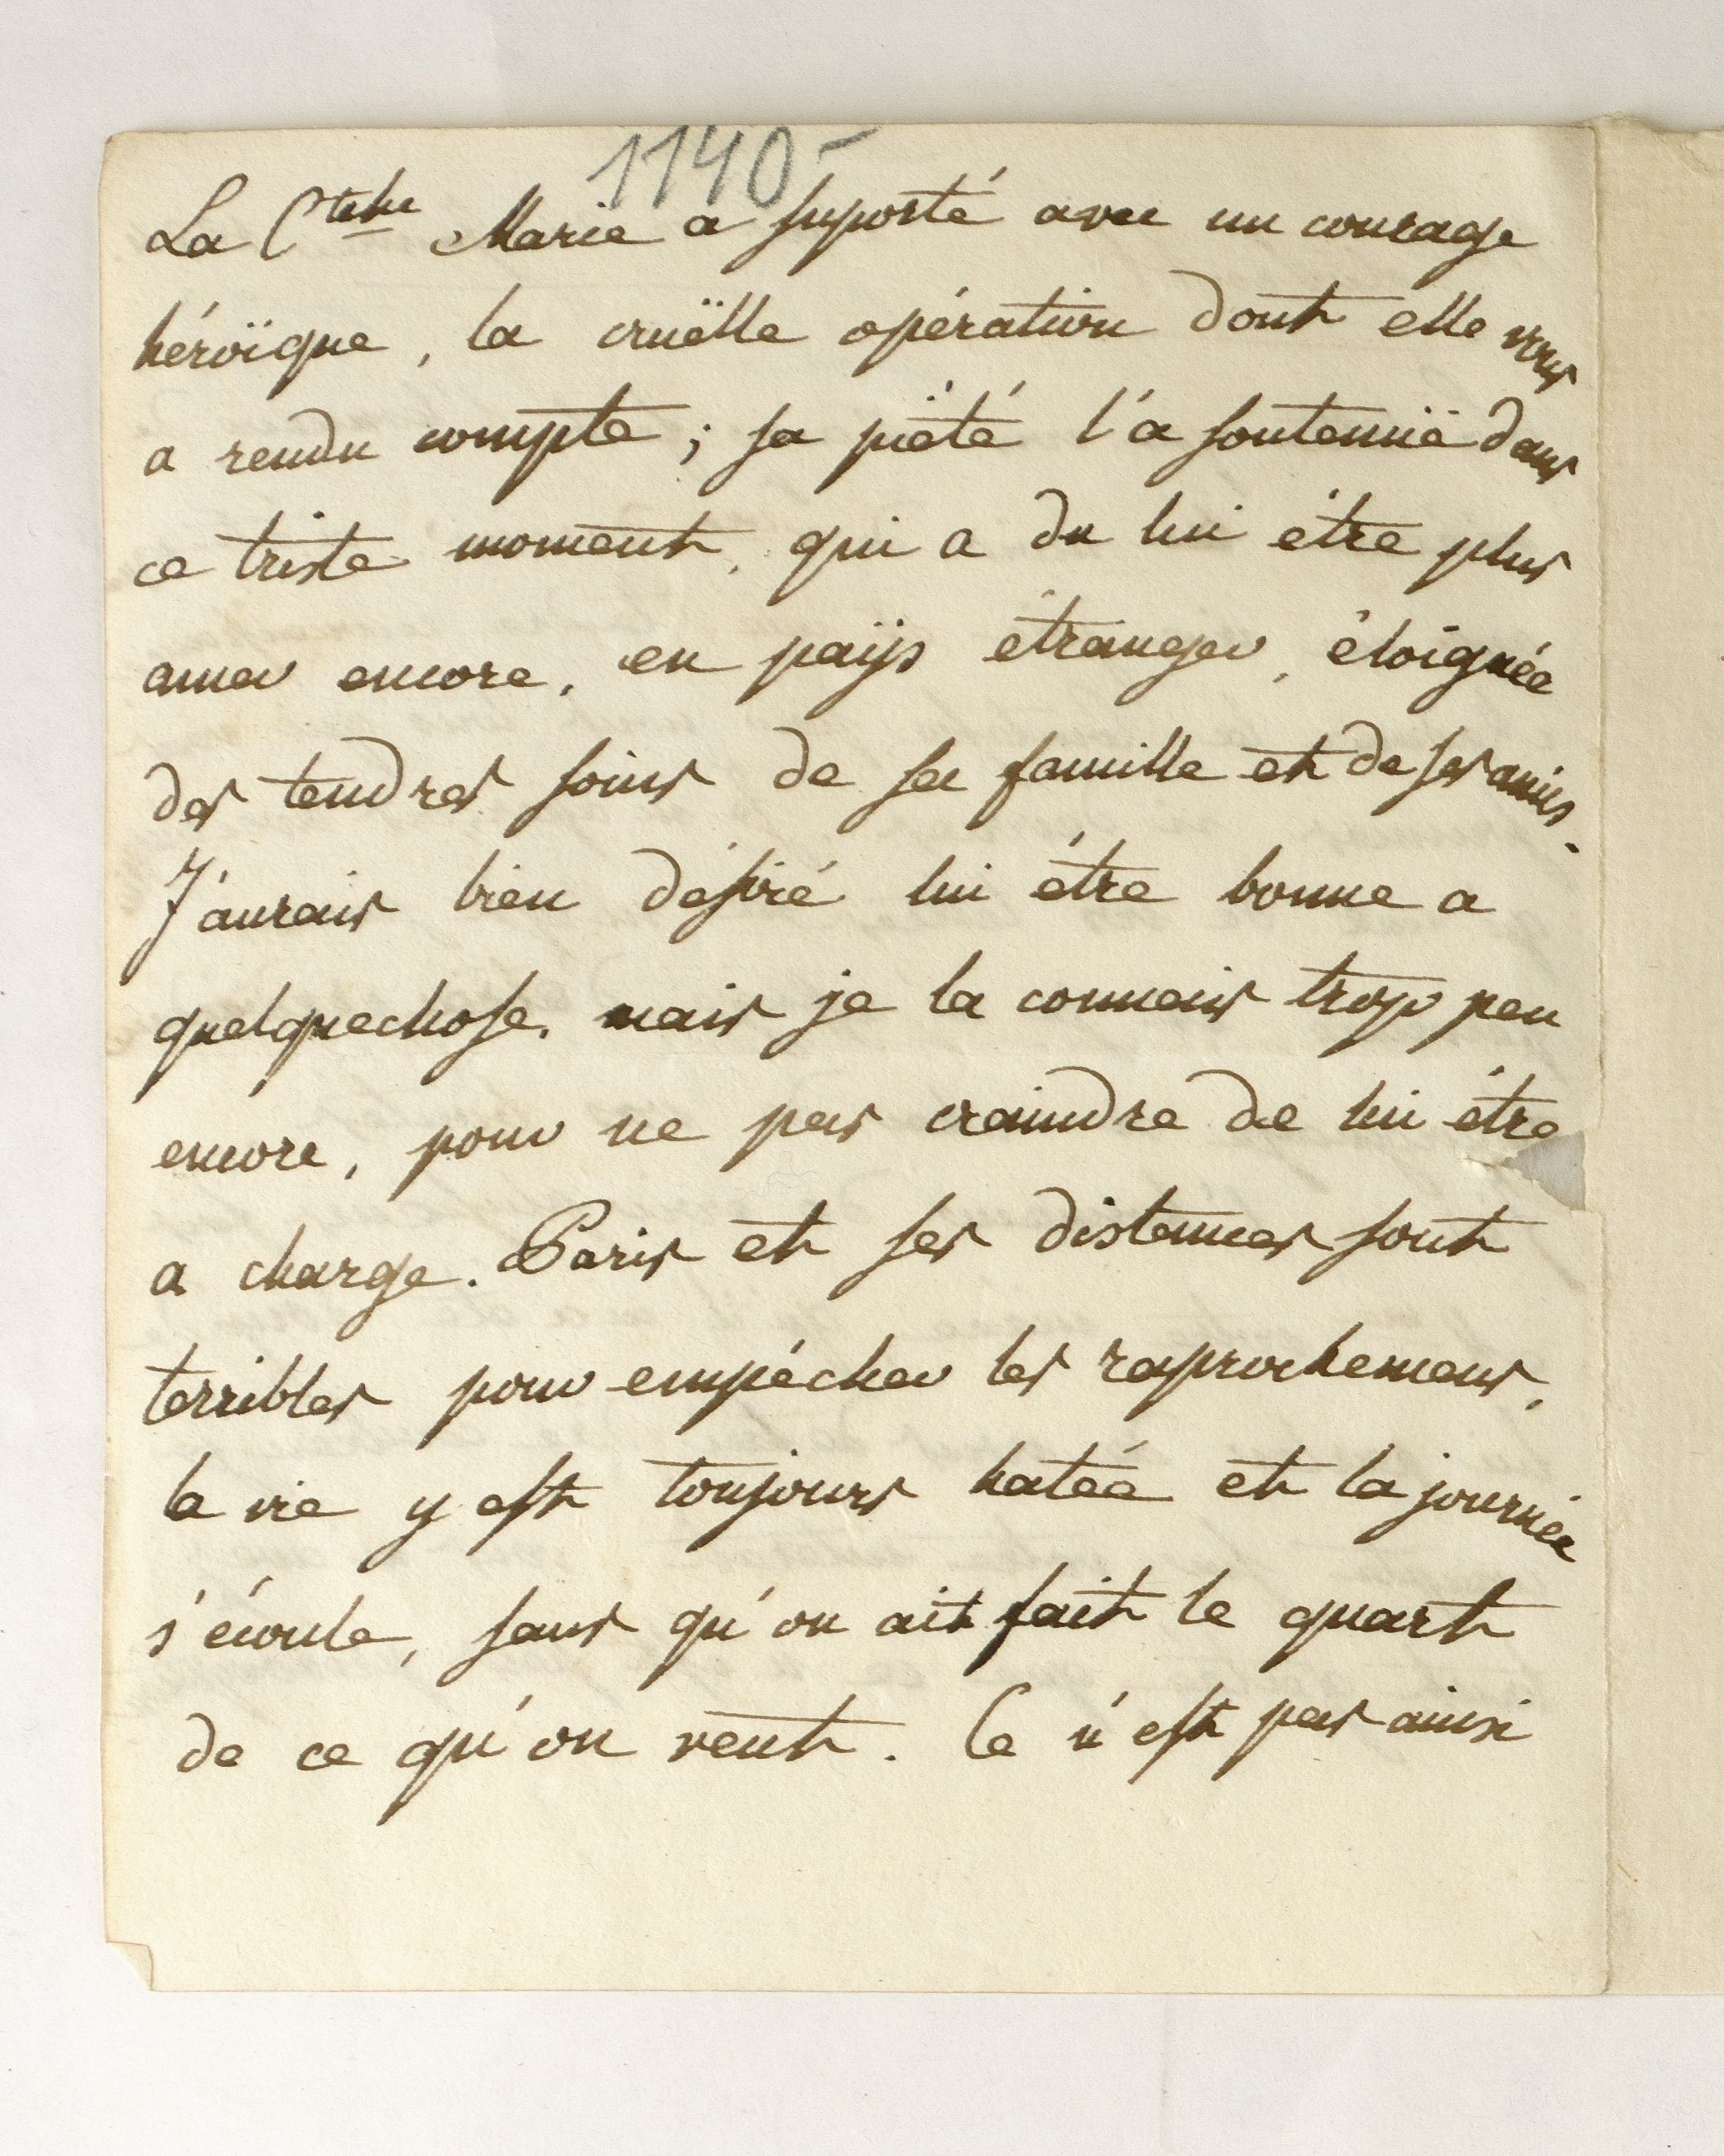 1140-
La Ctesse Marie a suporté avec un courage
héroïque, la cruëlle opération dont elle vous
a rendu compte; sa piëté l'a soutenuë dans
ce triste moment, qui a du lui être plus
amer encore, en paÿs étranger, éloignée
des tendres soins de sa famille et de ses amies.
J'aurais bien désiré lui être bonne a
quelquechose, mais je la connais trop peu
encore, pour ne pas craindre de lui être
a charge. Paris et ses distances sont
terribles pour empécher les raprochemens,
la vie y est toujours hatée et la journée
s'écoule, sans qu'on ait fait le quart
de ce qu'on veut. Ce n'est pas ainsi